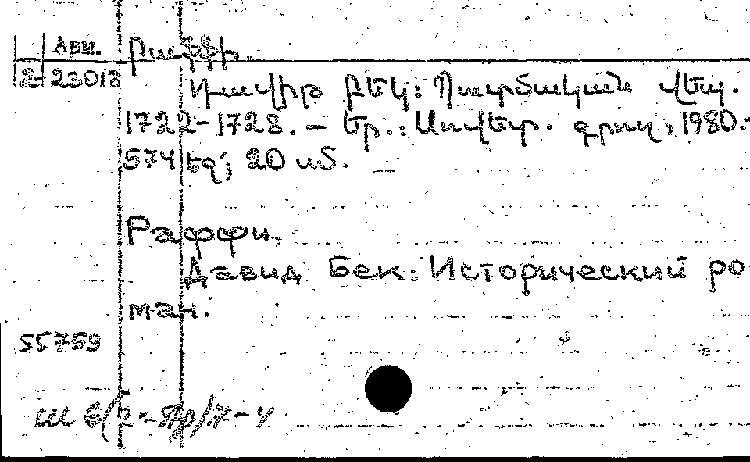 Авш. Րաֆֆի.
2 23013 Դավիթ Բեկ: Պատմական վեպ.
1722-1728. – Եր.: Սովետ. գրող, 1980.-
574 եզ; 20 սմ.
Раффи.
Давид Бек: Исторический ро
ман.
55759